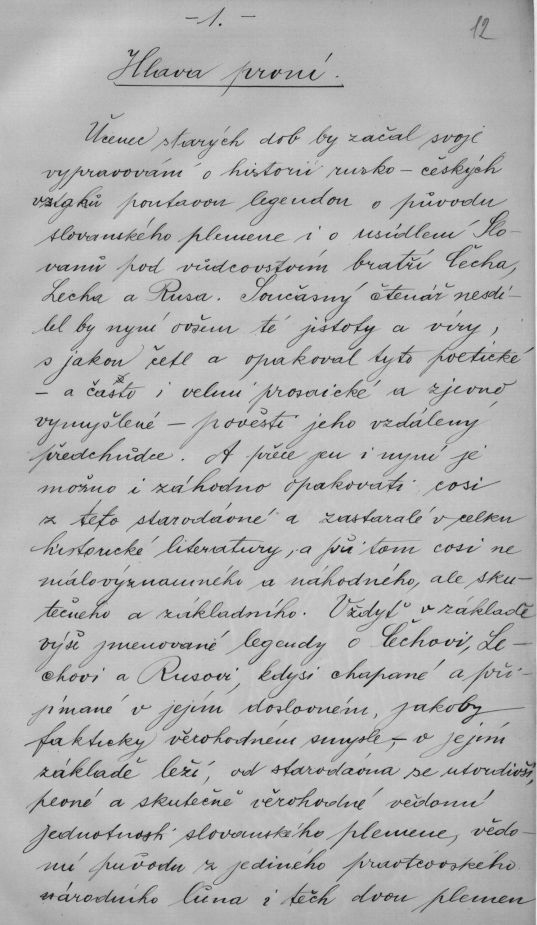 - 1. -
12
Hlava první.
Učenec starých dob by začal svoje
vypravování o historii rusko - českých
vztahů poutavou legendou o původu
slovanského plemene i o usídlení Slo-
vanů pod vůdcovstvím bratří Čecha,
Lecha a Rusa. Současný čtenář nesdí-
lel by nyní ovšem té jistoty a víry,
s jakou četl a opakoval tyto poetické
- a často i velmi prosaické a zjevně
vymyšlené - pověsti jeho vzdálený
předchůdce. A přece jen i nyní je
možno i záhodno opakovati cosi
z této starodávné a zastaralé v celku
historické literatury, a při tom cosi ne
málovýznamného a náhodného, ale sku-
tečného a základního. Vždyť v základě
výše jmenované legendy o Čechovi, Le-
chovi a Rusovi, kdysi chápané a při-
jímané v jejím doslovném, jakoby
fakticky věrohodném smysle, - v jejím
základě leží, od starodávna se utvrdivší,
pevné a skutečně věrohodné vědomí
jednotnosti slovanského plemene, vědo-
mí původu z jediného praotcovského
národního lůna i těch dvou plemen